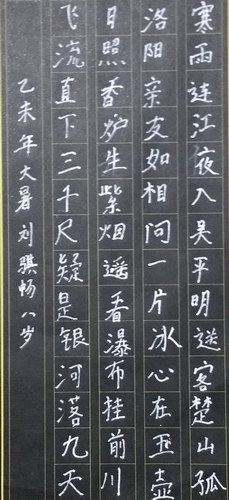 寒雨连江夜入吴平明送客楚山孤
洛阳亲友如相问一片冰心在玉壶
日照香炉生紫烟遥看瀑布挂前川
飞流直下三千尺疑是银河落九天
乙未年大暑刘骐畅八岁